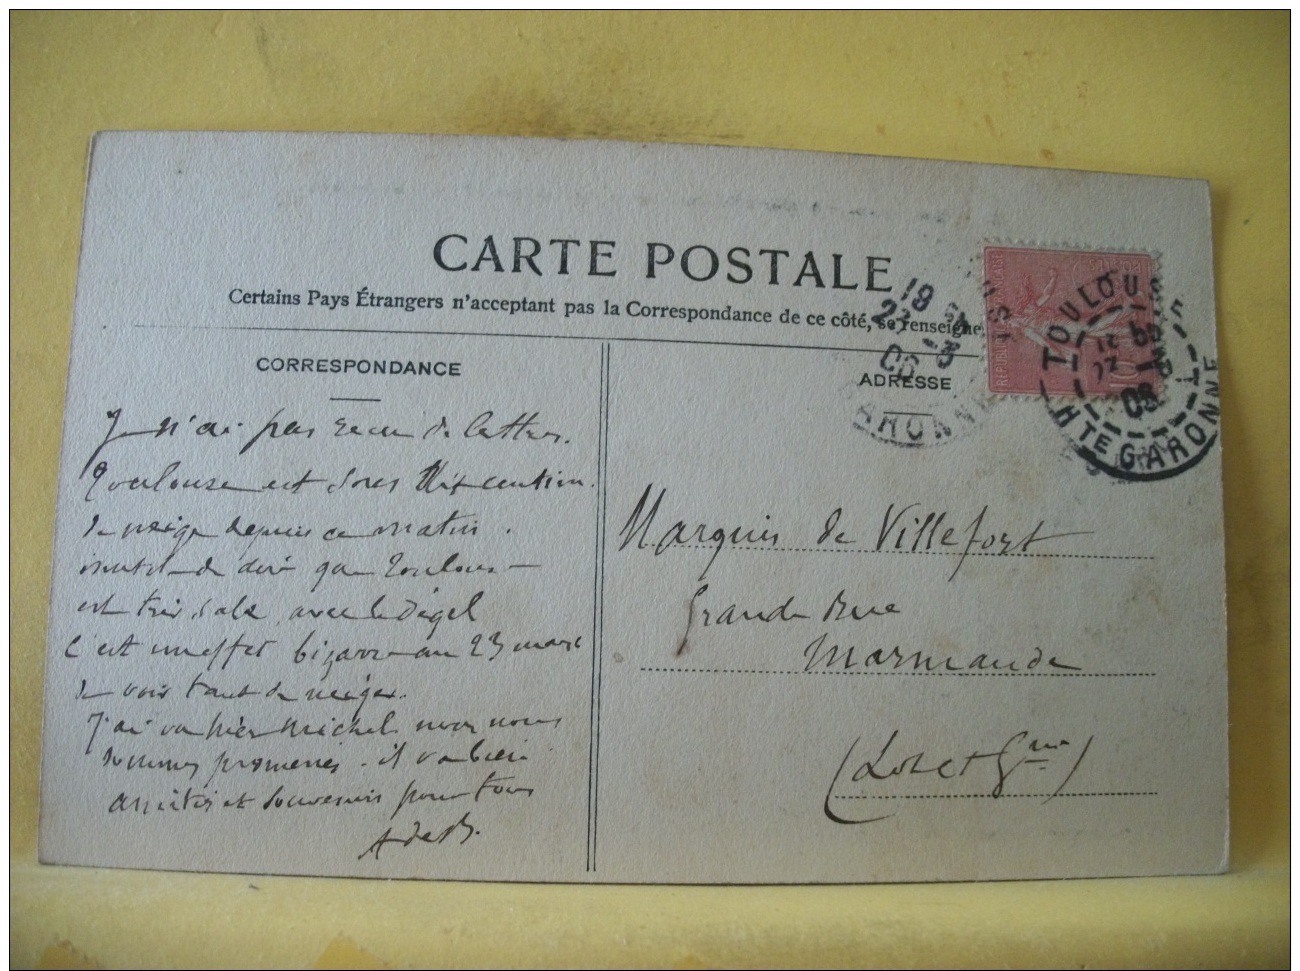 CARTE POSTALE
Certains Pays Étrangers n'acceptent pas la Correspondance de ce côté, se renseigne
CORRESPONDANCE
Je n'ai pas reçu de lettres.
Toulouse est sous dix centim.
de neige depuis ce matin.
inutile de dire que Toulouse
est très sale avec le dégel
C'est un effet bizarre au 23 mars
de voir tant de neige.
J'ai vu hier Michel nous nous
sommes promenés. il va bien
amitiés et souvenirs pour tous
A de B.
ADRESSE
Marquis de Villefort
Grande Rue
Marmande
(Lot et Gne)
RÉPUBLIQUE FRANÇAISE
POSTES
10
TOULOUSE
HTE GARONNE
18
23 -3
06
GARONNE